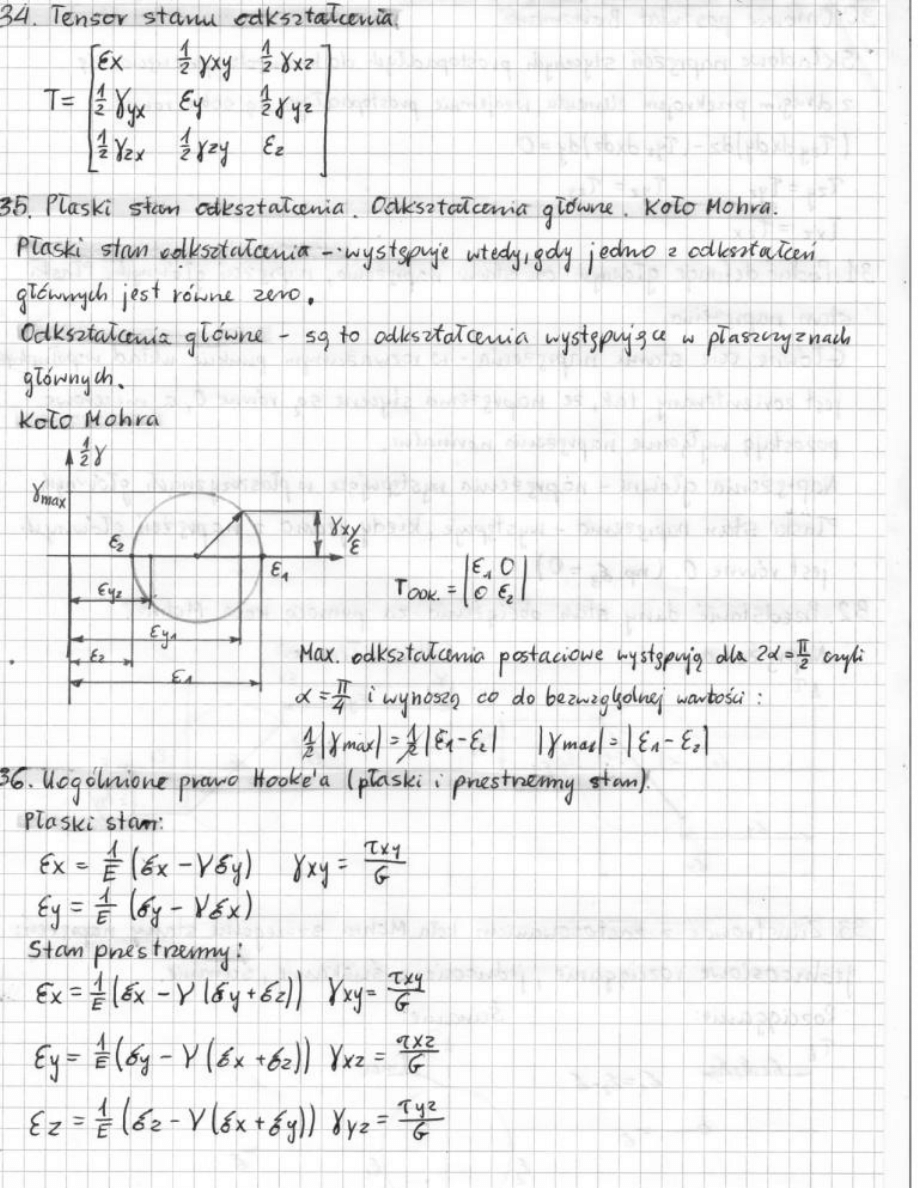 34. Tensor stanu odkształcenia
T = [εx ½γxy ½γxz
½γyx εy ½γyz
½γzx ½γzy εz]
35. Płaski stan odkształcenia. Odkształcenia główne. Koło Mohra.
Płaski stan odkształcenia - występuje wtedy, gdy jedno z odkształceń
głównych jest równe zero.
Odkształcenia główne - są to odkształcenia występujące w płaszczyznach
głównych.
Koło Mohra
½γ
γmax
γxy
ε
ε2
ε1
εy2
εy1
ε2
ε1
TODK. = |ε1 0
0 ε2|
Max. odkształcenia postaciowe występują dla 2α = π/2 czyli
α = π/4 i wynoszą co do bezwzględnej wartości :
½|γmax| = ½|ε1 - ε2| |γmax| = |ε1 - ε2|
36. Uogólnione prawo Hooke'a (płaski i przestrzenny stan).
Płaski stan:
εx = 1/E (σx - νσy) γxy = τxy/G
εy = 1/E (σy - νσx)
Stan przestrzenny:
εx = 1/E (σx - ν(σy + σz)) γxy = τxy/G
εy = 1/E (σy - ν(σx + σz)) γxz = τxz/G
εz = 1/E (σz - ν(σx + σy)) γyz = τyz/G